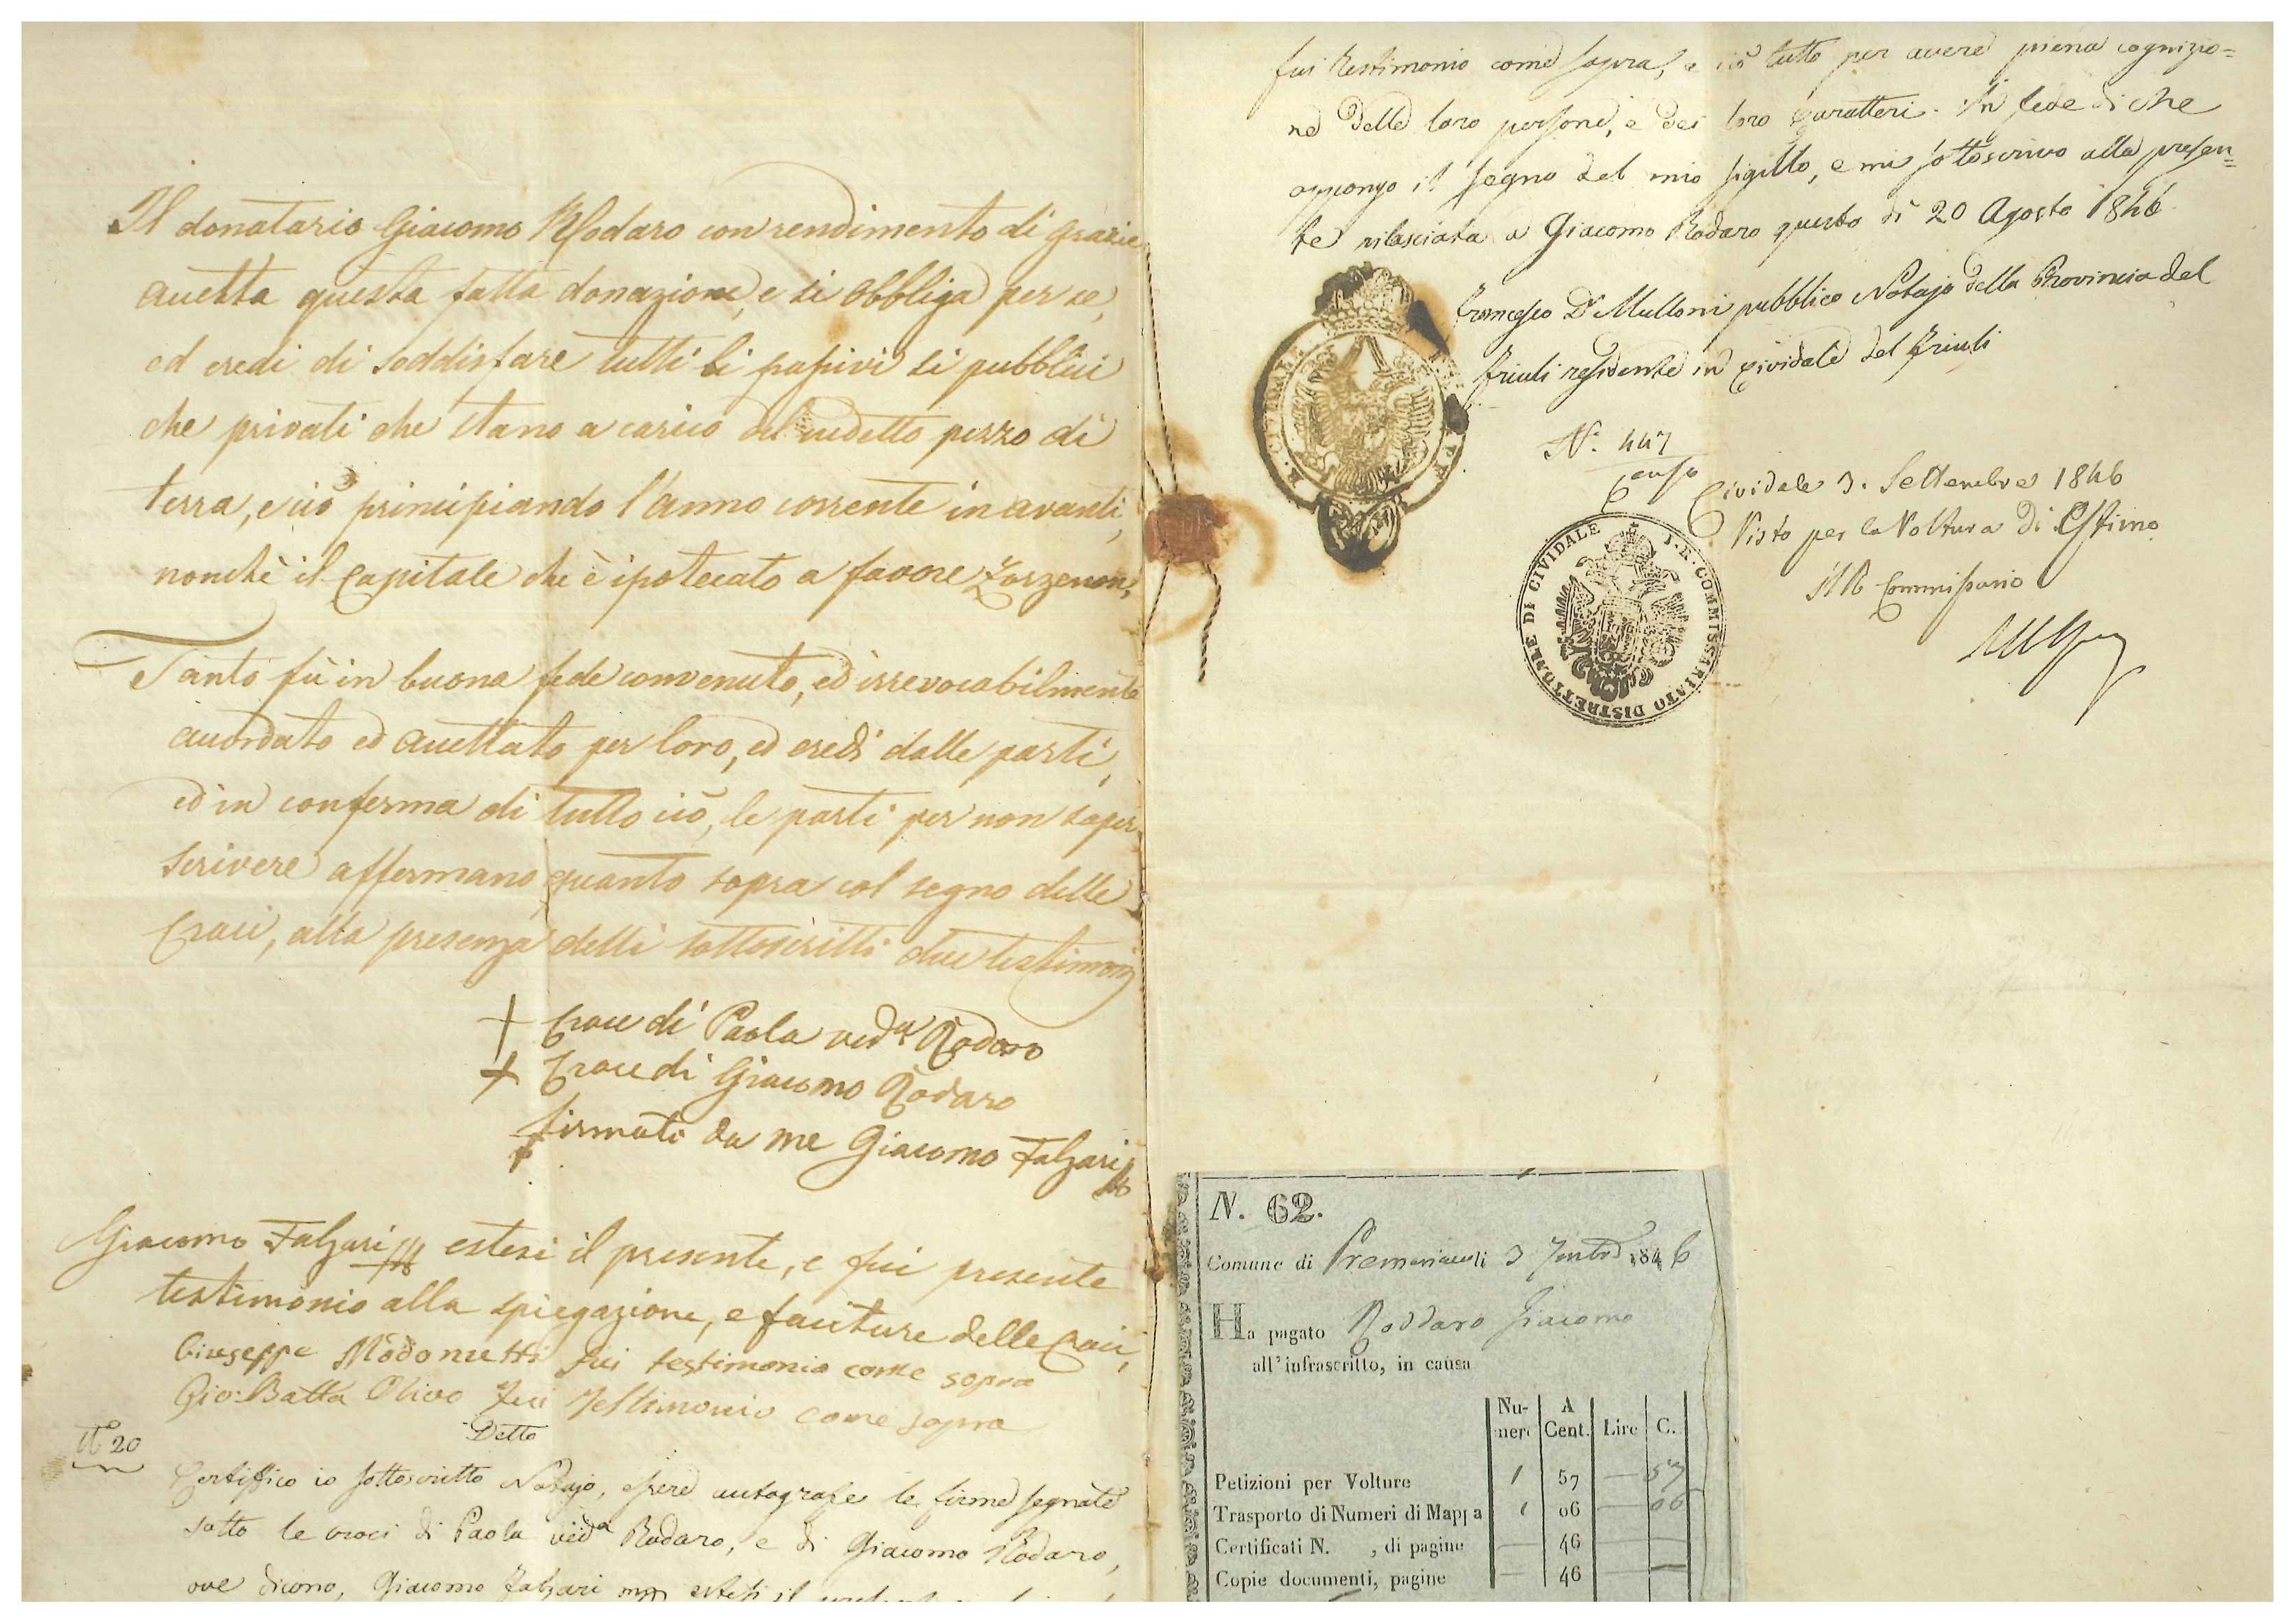 Il donatario Giacomo Rodaro con rendimento di grazie
accetta questa fatta donazione, e si obbliga per se,
ed eredi di soddisfare tutti li passivi si pubblici
che privati che stano a carico del sudetto pezzo di
terra, e ciò principiando l'anno corrente in avanti,
nonchè il Capitale che è ipotecato a favore Zorzenon,
Tanto fù in buona fede convenuto, ed irrevocabilmente
accordato ed accettato per loro, ed eredi dalle parti,
ed in conferma di tutto ciò, le parti per non saper
scrivere affermano quanto sopra col segno delle
Croci, alla presenza delli sottoscritti due testimonj
+ Croce di Paola ved.a Rodaro
+ Croce di Giacomo Rodaro
firmati da me Giacomo Falzari
Giacomo Falzari estesi il presente, e fui presente
testimonio alla spiegazione, e faciture delle Croci,
Giuseppe Modonutti fui testimonio come sopra
Gio: Batta Olivo fui Testimonio come sopra
Detto
N.o 20
Certifico io sottoscritto Notajo, essere autografe le firme segnate
sotto le croci di Paola ved.a Rodaro, e di Giacomo Rodaro,
ove dicono, Giacomo Falzari estesi il
fui testimonio come sopra, e ciò tutto per avere piena cognizio=
ne delle loro persone, e dei loro caratteri. In fede di che
appongo il segno del mio sigillo, e mi sottoscrivo alla presen=
te rilasciata a Giacomo Rodaro questo dì 20 Agosto 1846.
Francesco Dr Mulloni pubblico Notajo della Provincia del
Friuli residente in Cividale del Friuli
N.o 447
Censo
Cividale 3. Settembre 1846
Visto per la Voltura di Estimo
Il R Commissario
I. R. COMMISSARIATO DISTRETTUALE DI CIVIDALE
N. 62.
Comune di Premariacco li 3 1846
Ha pagato Roddaro Giacomo
all' infrascritto, in causa
Nu- A
meri Cent. Lire C.
Petizioni per Volture 1 57 — 57
Trasporto di Numeri di Mappa 1 06 — 06
Certificati N. , di pagine — 46 —
Copie documenti, pagine — 46 —